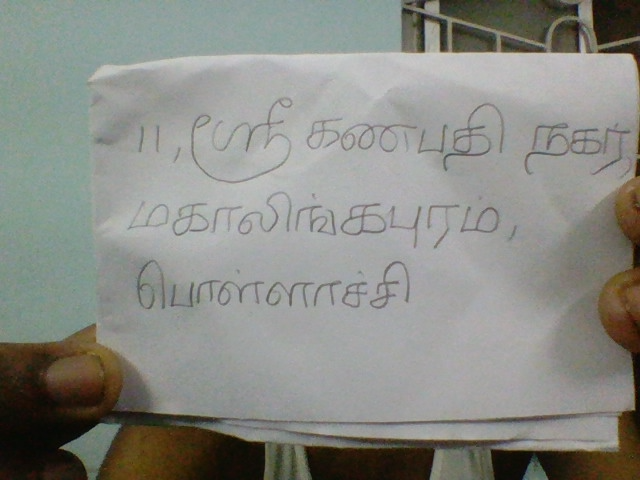 11, ஸ்ரீ கணபதி நகர்,
மகாலிங்கபுரம்,
பொள்ளாச்சி